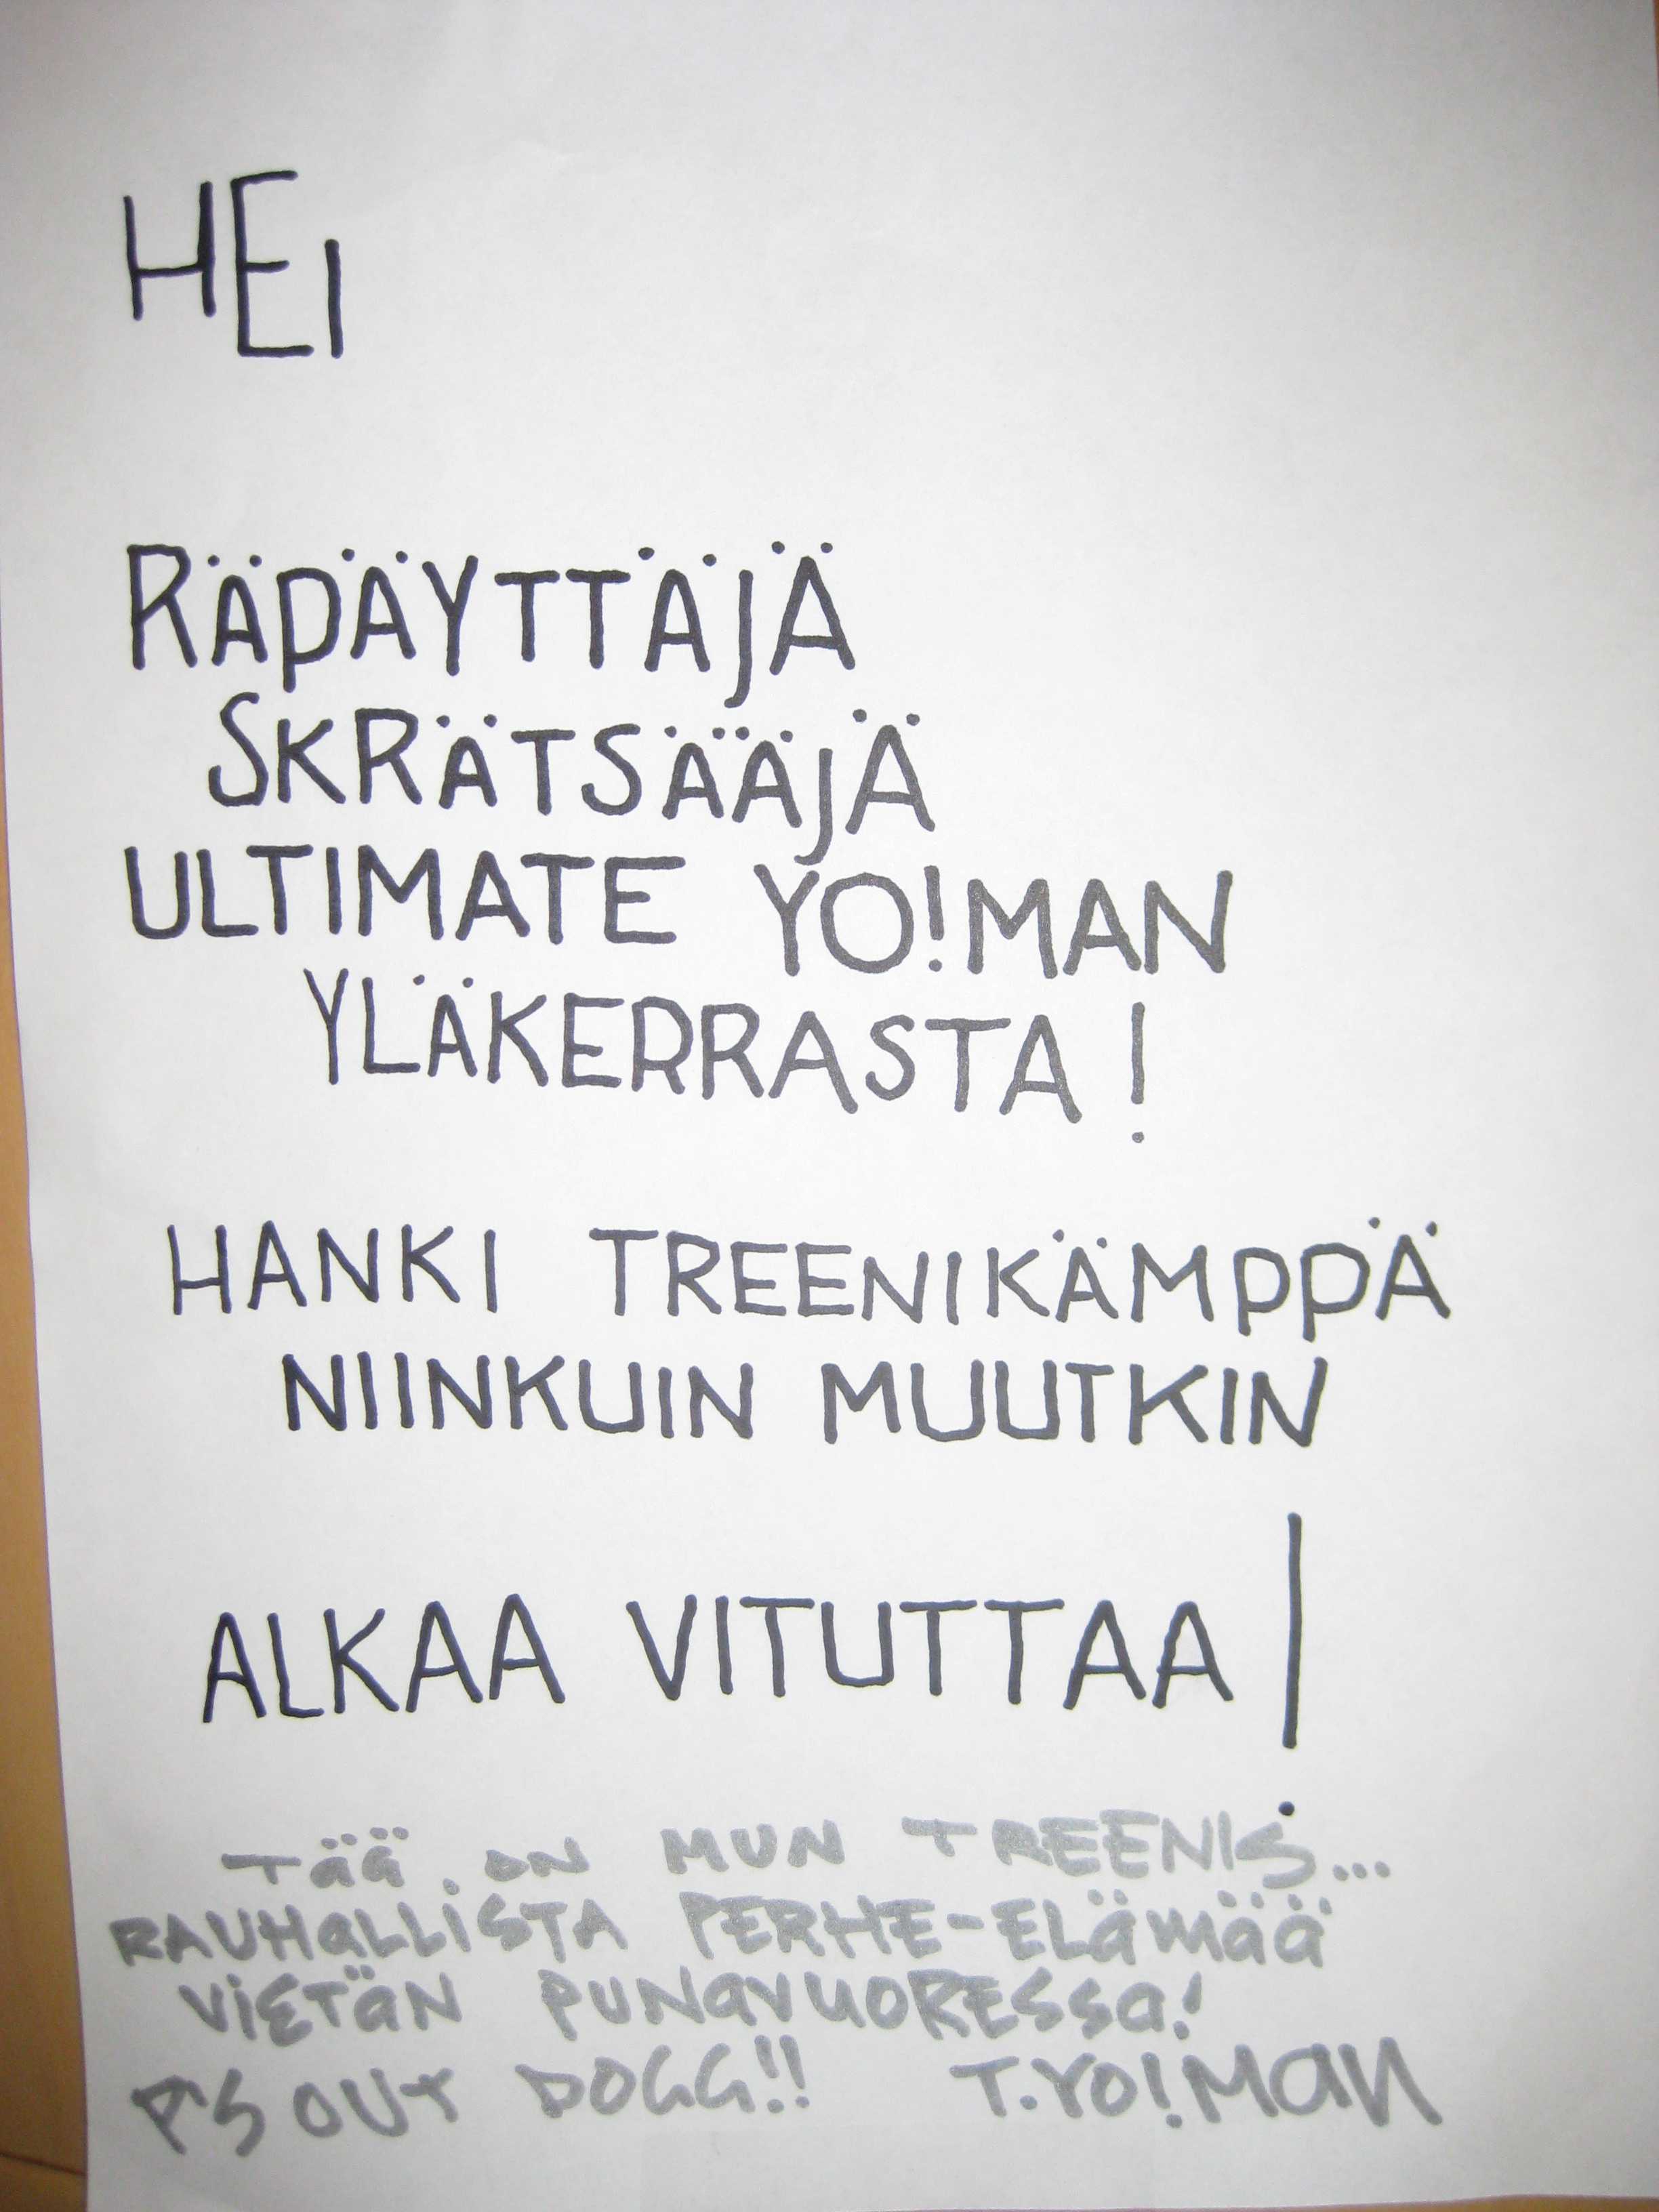 HEI
RÄPÄYTTÄJÄ
SKRÄTSÄÄJÄ
ULTIMATE YO!MAN
YLÄKERRASTA!
HANKI TREENIKÄMPPÄ
NIINKUIN MUUTKIN
ALKAA VITUTTAA!
Tää on MUN TREENIS...
RAUHaLLiSTA PERHE-ELäMää
ViETäN PUNaVUORESSa!
P'S OUT DOGG!! T.YO!Man